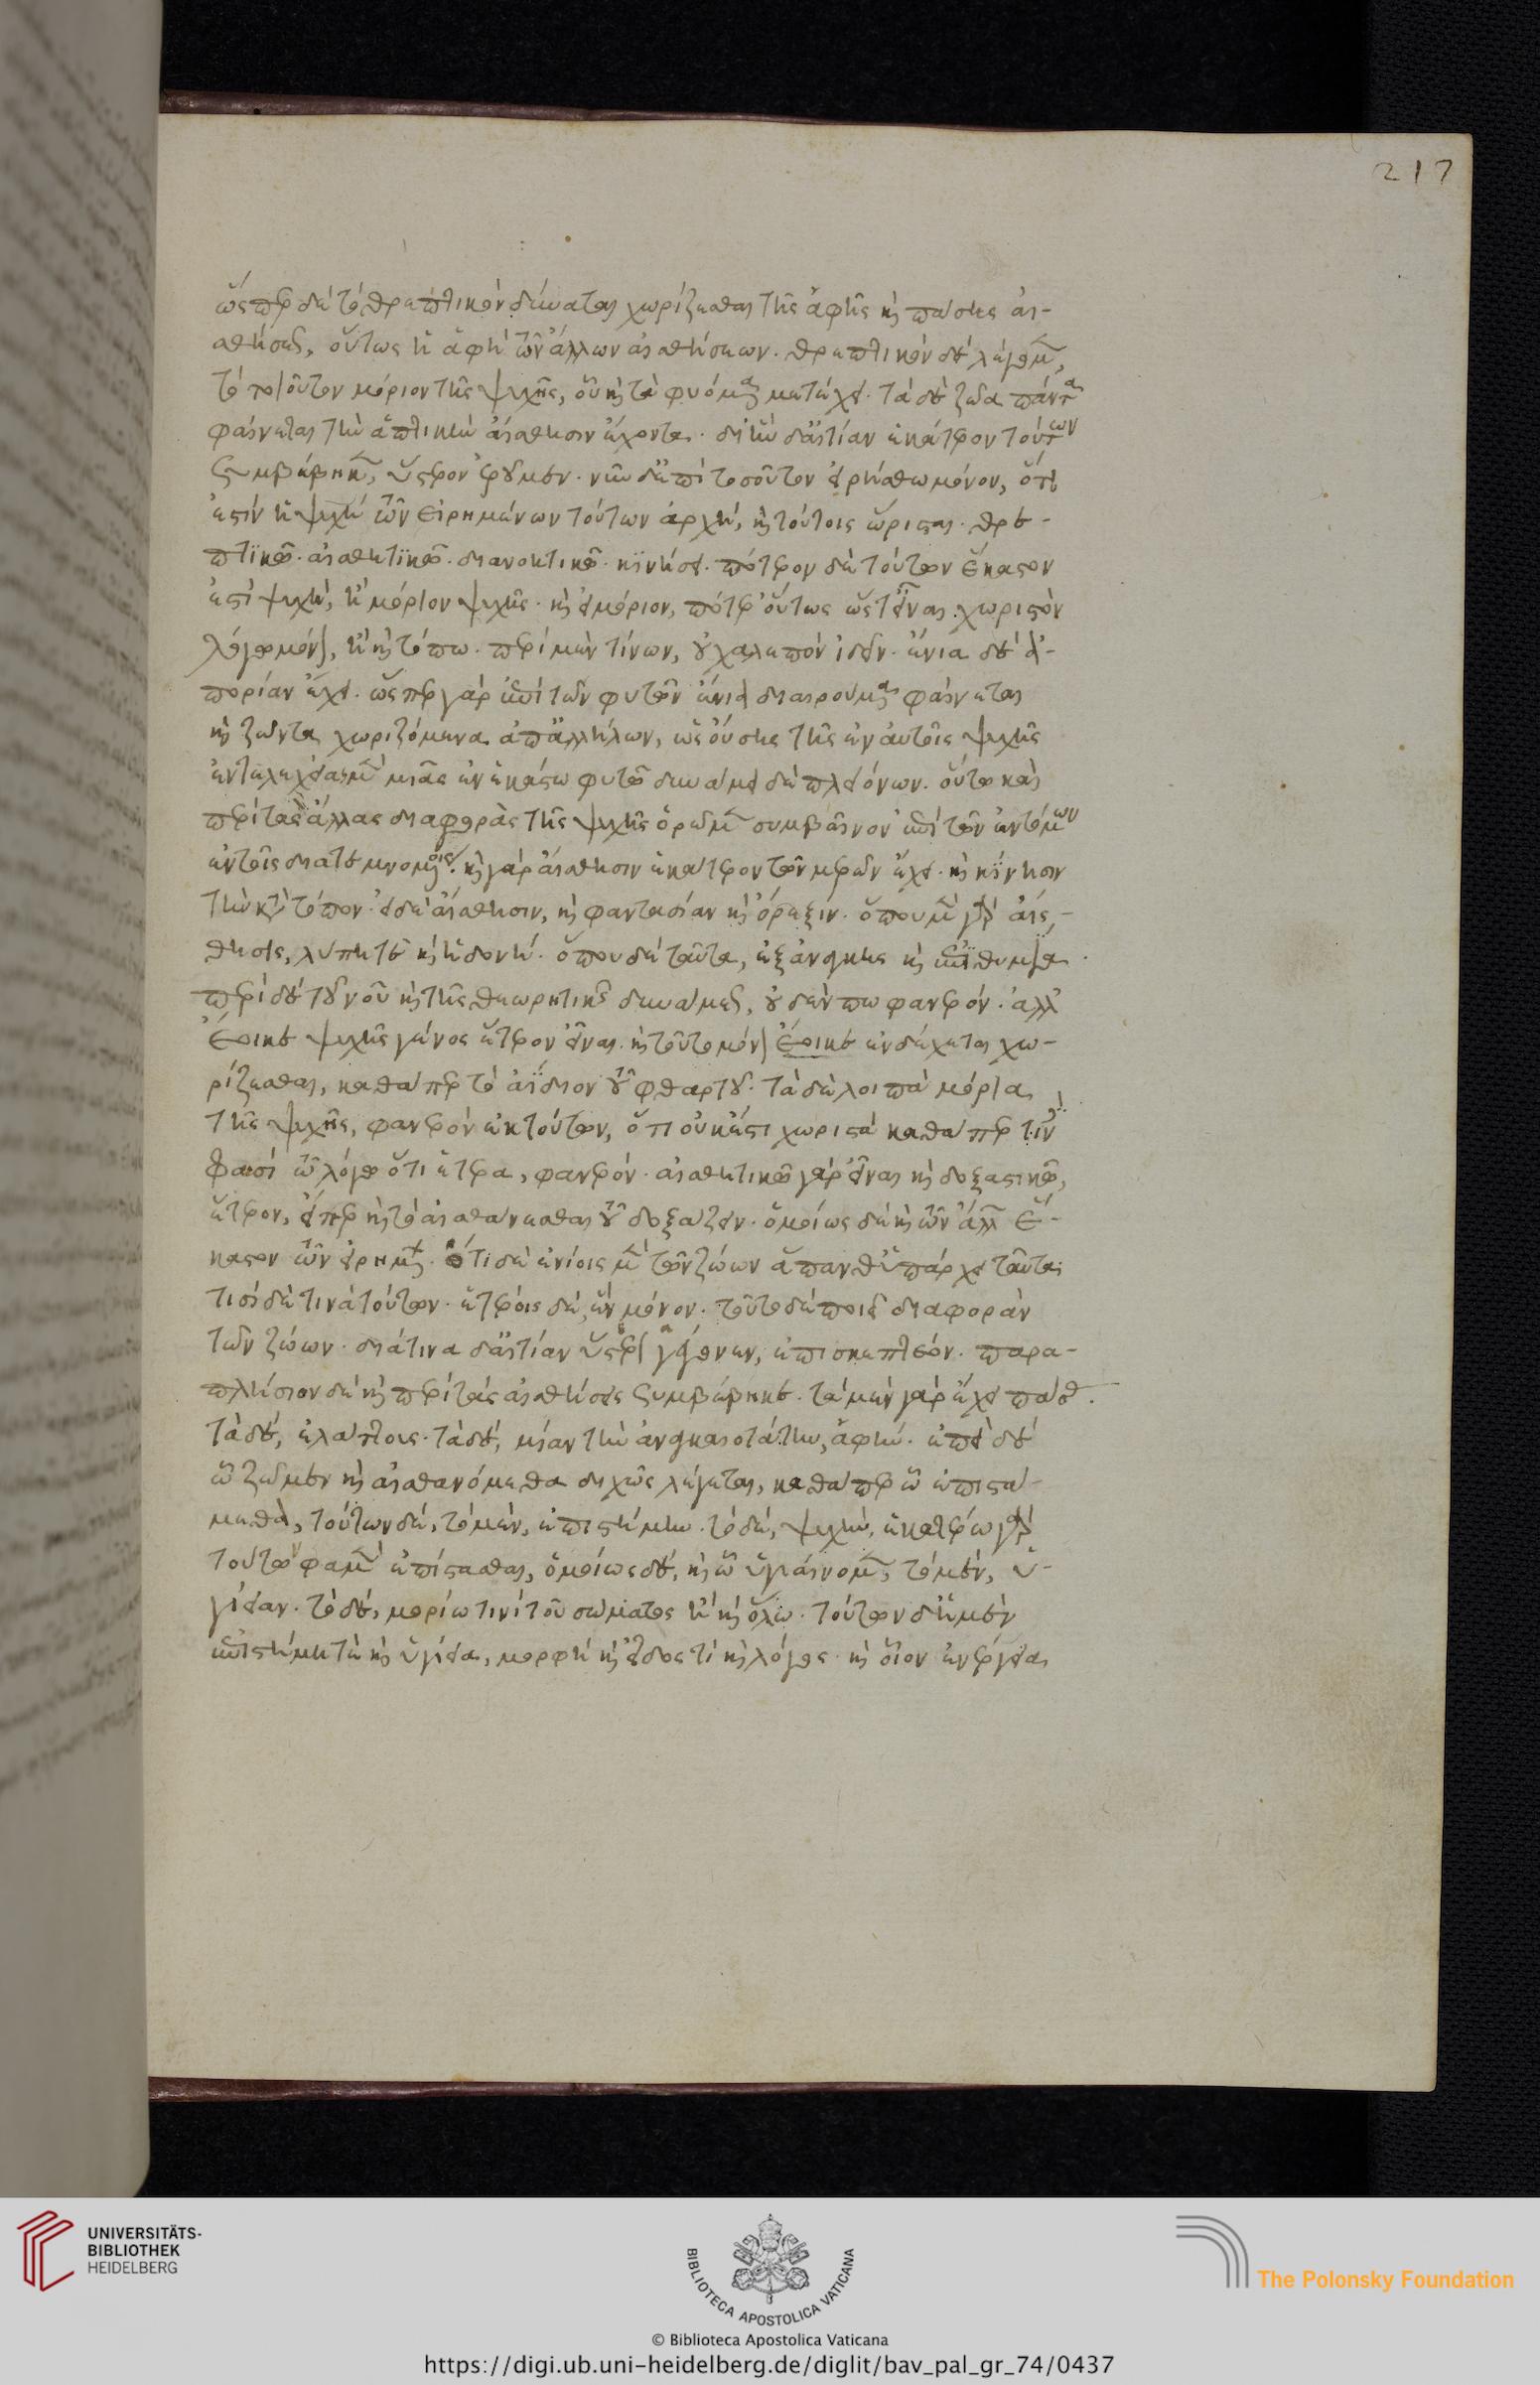 217
ὥσπερ δὲ τὸ θρεπτικὸν δύναται χωρίζεσθαι τῆς ἁφῆς καὶ πάσης αἰ-
σθήσεως, οὕτως ἡ ἁφὴ τῶν ἄλλων αἰσθήσεων. θρεπτικὸν δὲ λέγομεν,
τὸ τοιοῦτον μόριον τῆς ψυχῆς, οὗ καὶ τὰ φυόμενα μετέχει. τὰ δὲ ζῶα πάντα
φαίνεται τὴν ἁπτικὴν αἴσθησιν ἔχοντα. δι' ἣν δ' αἰτίαν ἑκάτερον τούτων
συμβέβηκεν, ὕστερον ἐροῦμεν. νῦν δ' ἐπὶ τοσοῦτον εἰρήσθω μόνον, ὅτι
ἐστὶν ἡ ψυχὴ τῶν εἰρημένων τούτων ἀρχή, καὶ τούτοις ὥρισται. θρε-
πτικῶ. αἰσθητικῶ. διανοητικῶ. κινήσει. πότερον δὲ τούτων ἕκαστον
ἐστὶ ψυχή, ἢ μόριον ψυχῆς. καὶ εἰ μόριον, πότερ' οὕτως ὥστ' εἶναι χωριστὸν
λόγω μόνον, ἢ καὶ τόπω. περὶ μὲν τίνων, οὐ χαλεπὸν ἰδεῖν. ἔνια δὲ ἀ-
πορίαν ἔχει. ὥσπερ γὰρ ἐπὶ τῶν φυτῶν ἔνια διαιρούμενα φαίνεται
καὶ ζῶντα χωριζόμενα ἀπ' ἀλλήλων, ὡς οὔσης τῆς ἐν αὐτοῖς ψυχῆς
ἐντελεχεία μὲν μιᾶς ἐν ἑκάστω φυτῶ δυνάμει δὲ πλειόνων. οὕτω καὶ
περὶ τὰς ἄλλας διαφορὰς τῆς ψυχῆς ὁρῶμεν συμβαῖνον ἐπὶ τῶν ἐντόμων
ἐν τοῖς διατεμνομένοις. καὶ γὰρ αἴσθησιν ἑκάτερον τῶν μερῶν ἔχει. καὶ κίνησιν
τὴν κατὰ τόπον. εἰ δὲ αἴσθησιν, καὶ φαντασίαν καὶ ὄρεξιν. ὅπου μὲν γὰρ αἴσ-
θησις, λύπη τε καὶ ἡδονή. ὅπου δὲ ταῦτα, ἐξ ἀνάγκης καὶ ἐπιθυμία.
περὶ δὲ τοῦ νοῦ καὶ τῆς θεωρητικῆς δυνάμεως, οὐδέν πω φανερόν. ἀλλ'
ἔοικε ψυχῆς γένος ἕτερον εἶναι. καὶ τοῦτο μόνον ἔοικε ἐνδέχεται χω-
ρίζεσθαι, καθάπερ τὸ ἀΐδιον τοῦ φθαρτοῦ. τὰ δὲ λοιπὰ μόρια
τῆς ψυχῆς, φανερὸν ἐκ τούτων, ὅτι οὐκ ἔστι χωριστὰ καθάπερ τινές
φασί τῶ λόγω ὅτι ἕτερα, φανερόν. αἰσθητικῶ γὰρ εἶναι καὶ δοξαστικῶ,
ἕτερον, εἴπερ καὶ τὸ αἰσθάνεσθαι τοῦ δοξάζειν. ὁμοίως δὲ καὶ τῶν ἄλλων ἕ-
καστον τῶν εἰρημένων. ἔτι δὲ ἐνίοις μὲν τῶν ζώων ἅπανθ' ὑπάρχει ταῦτα.
τισὶ δὲ τινὰ τούτων. ἑτέροις δέ, ἓν μόνον. τοῦτο δὲ ποιεῖ διαφορὰν
τῶν ζώων. διὰ τίνα δ' αἰτίαν ὕστερον γέγονεν, ἐπισκεπτέον. παρα-
πλήσιον δὲ καὶ περὶ τὰς αἰσθήσεις συμβέβηκε. τὰ μὲν γὰρ ἔχει πάσας.
τὰ δέ, ἐλάττους. τὰ δέ, μίαν τὴν ἀναγκαιοτάτην, ἁφήν. ἐπεὶ δὲ
ὧ ζῶμεν καὶ αἰσθανόμεθα διχῶς λέγεται, καθάπερ ὧ ἐπιστά-
μεθα, τούτων δέ, τὸ μὲν, ἐπιστήμην. τὸ δέ, ψυχήν, ἑκατέρω γὰρ
τούτων φαμὲν ἐπίστασθαι, ὁμοίως δέ, καὶ ὧ ὑγιαίνομεν, τὸ μέν, ὑ-
γίειαν. τὸ δέ, μορίω τινὶ τοῦ σώματος ἢ καὶ ὅλω. τούτων δ' ἡ μὲν
ἐπιστήμη τὲ καὶ ὑγίεια, μορφὴ καὶ εἶδος τὶ καὶ λόγος. καὶ οἷον ἐνέργεια
UNIVERSITÄTS-
BIBLIOTHEK
HEIDELBERG
BIBLIOTECA APOSTOLICA VATICANA
The Polonsky Foundation
© Biblioteca Apostolica Vaticana
https://digi.ub.uni-heidelberg.de/diglit/bav_pal_gr_74/0437